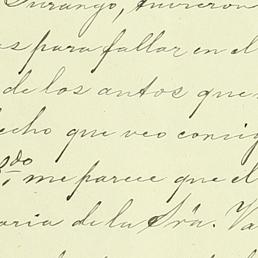 Durango, tuvieron
os para fallar en el
de los autos que
echo que veo consig
2do me parece que el
aria de la Sra. Va